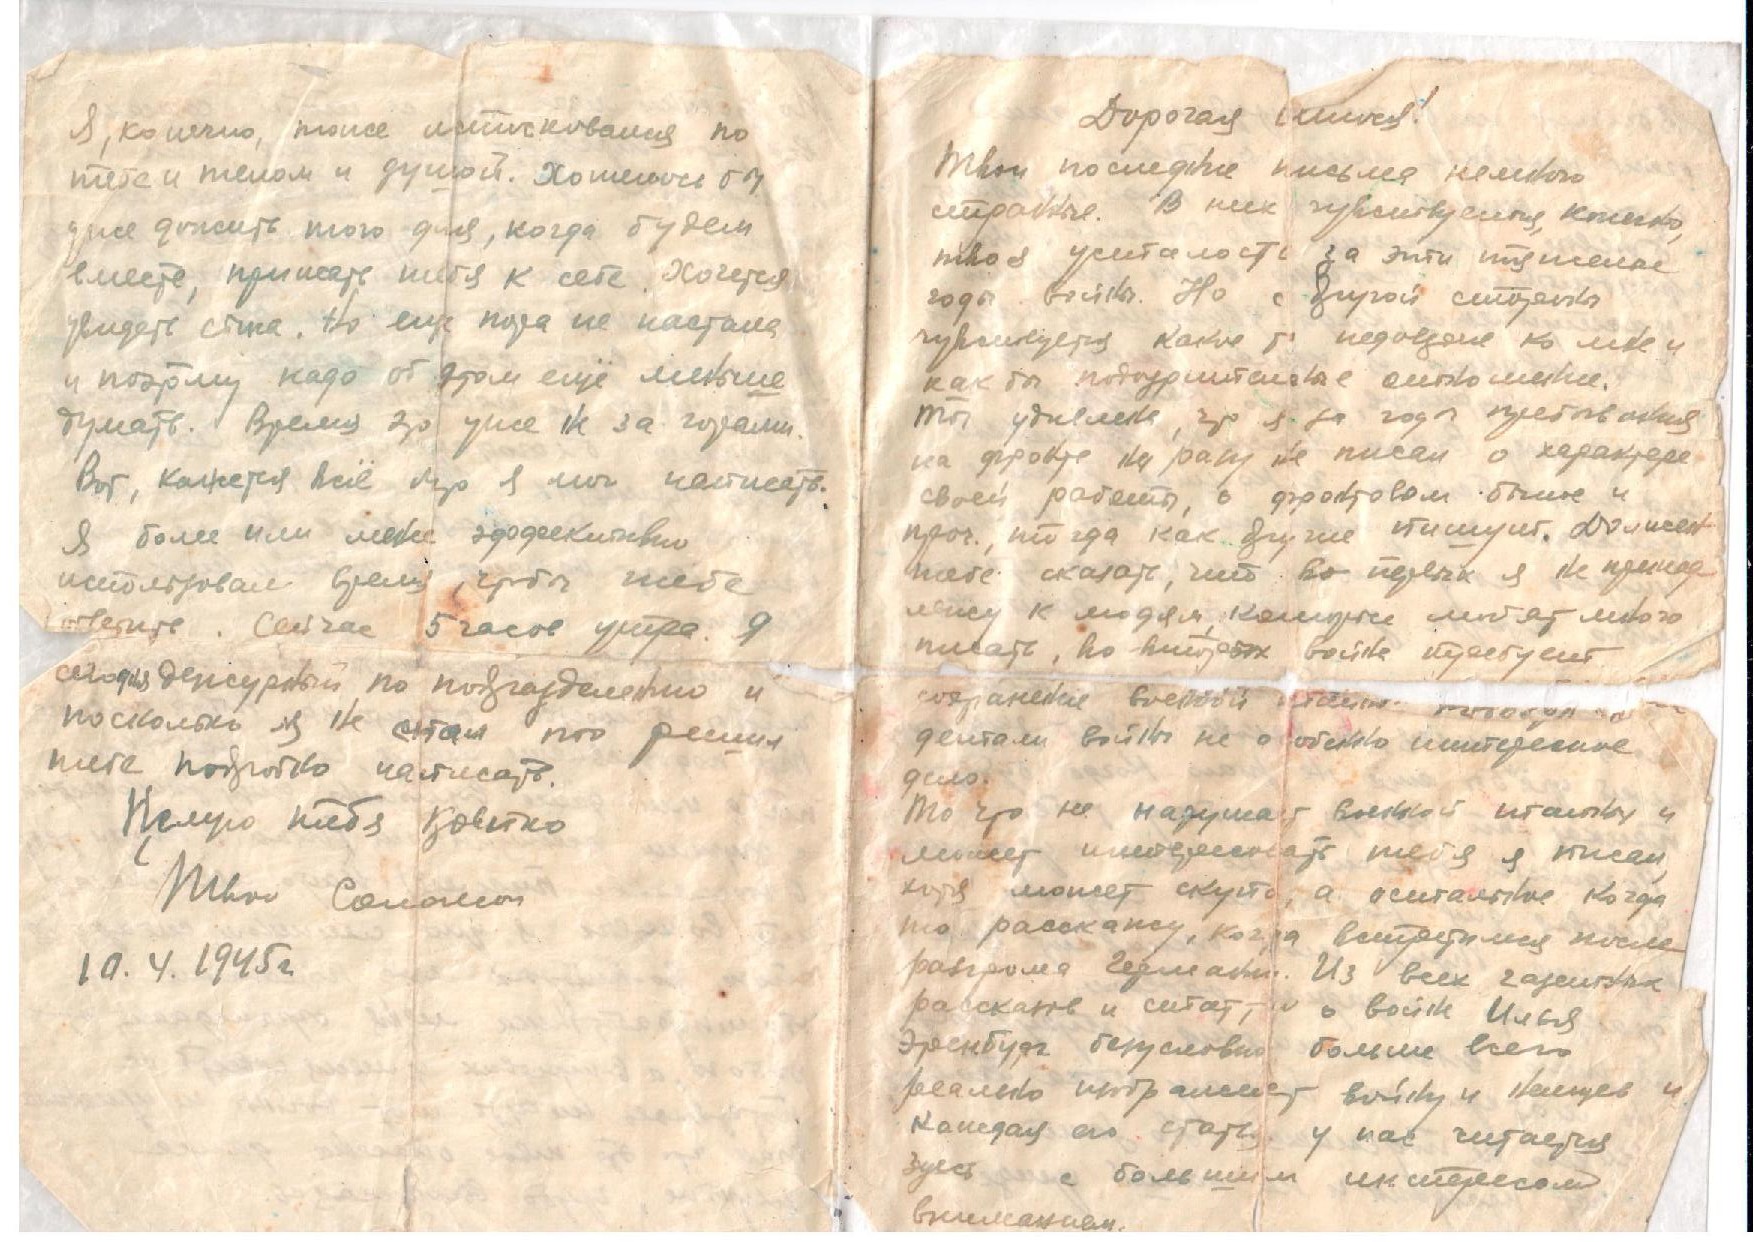 Дорогая !
Твои последние письма немного
странные. В них чувствуется, конечно,
твоя усталость за эти тяжелые
годы войны. Но с другой стороны
чувствуется какое то недоверие ко мне и
как бы подозрительное отношение.
Ты удивлена, что я за годы пребывания
на фронте ни разу не писал о характере
своей работы, о фронтовом бытие и
проч., тогда как другие пишут. Должен
тебе сказать, что во первых я не принад
лежу к людям, которые любят много
писать, во вторых война требует
сохранение военной тайны.
детали войны не особенно интересное
дело.
То что не нарушает военной тайны и
может интересовать тебя я писал,
хотя может скупо, а остальное когда
то расскажу, когда встретимся после
разгрома Германии. Из всех газетных
рассказов и статей о войне Илья
Эренбург безусловно больше всего
реально изображает войну и немцев и
каждая его статья у нас читается
здесь с большим интересом
вниманием.
Я, конечно, тоже истосковался по
тебе и телом и душой. Хотелось бы
уже дожить того дня, когда будем
вместе, прижать тебя к себе. Хочется
увидеть сына. Но еще пора не настала
и поэтому надо об этом ещё меньше
думать. Время это уже не за горами.
Вот, кажется всё что я мог написать.
Я более или менее эффективно
использовал время, чтобы тебе
ответить. Сейчас 5 часов утра. Я
сегодня дежурный по подразделению и
поскольку я не спал то решил
тебе подробно написать.
Целую тебя крепко
Твой Соломон
10.4.1945г